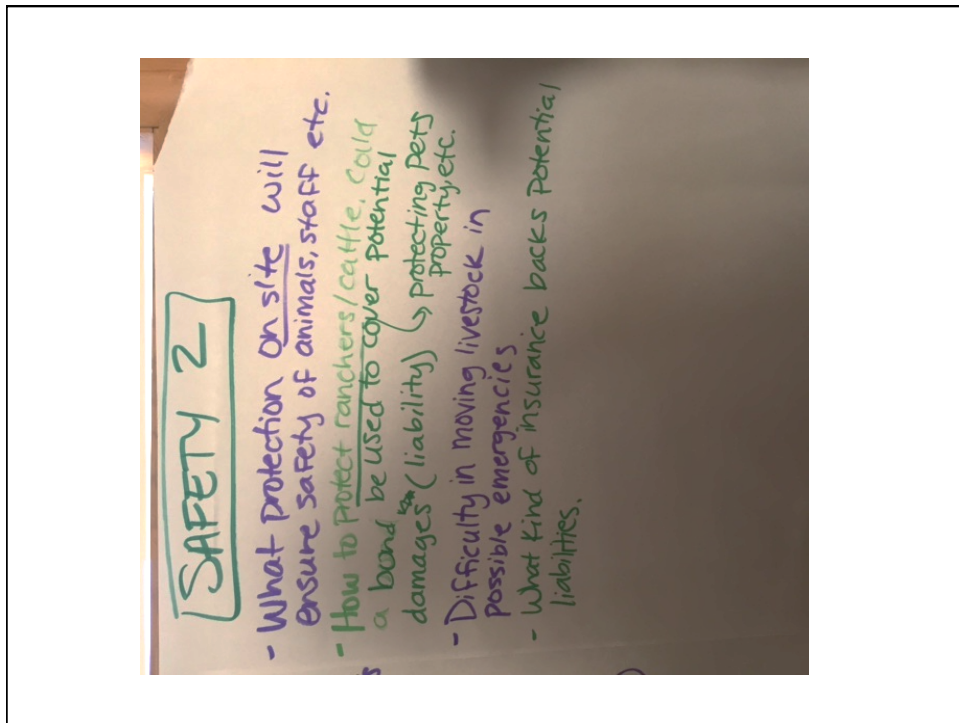 SAFETY 2
- What protection on site will
ensure safety of animals, staff etc.
- How to protect ranchers/cattle. Could
a bond be used to cover potential
damages (liability) ↳ protecting pets
property, etc.
- Difficulty in moving livestock in
possible emergencies
- What kind of insurance backs potential
liabilities.